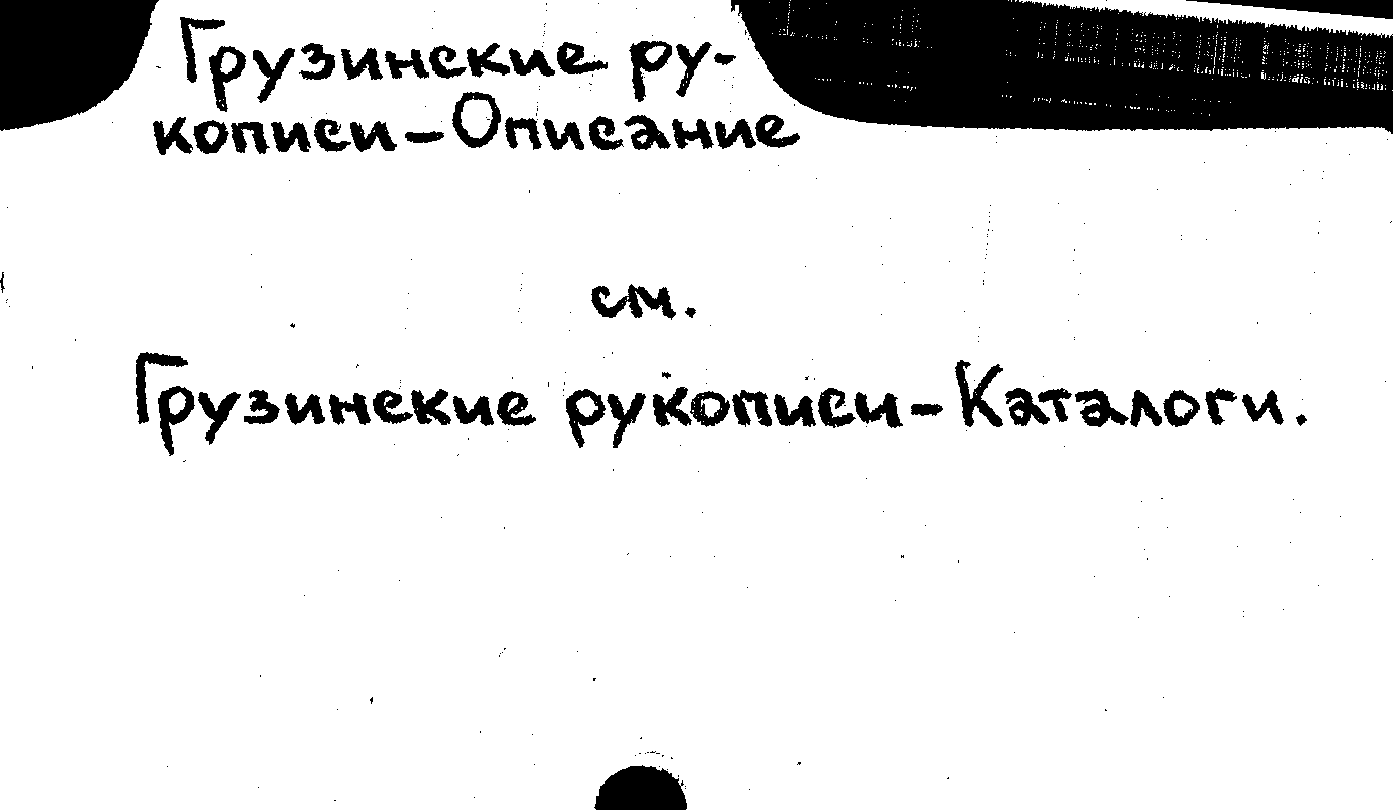 Грузинские ру-
кописи-Описание
см.
Грузинские рукописи-Каталоги.